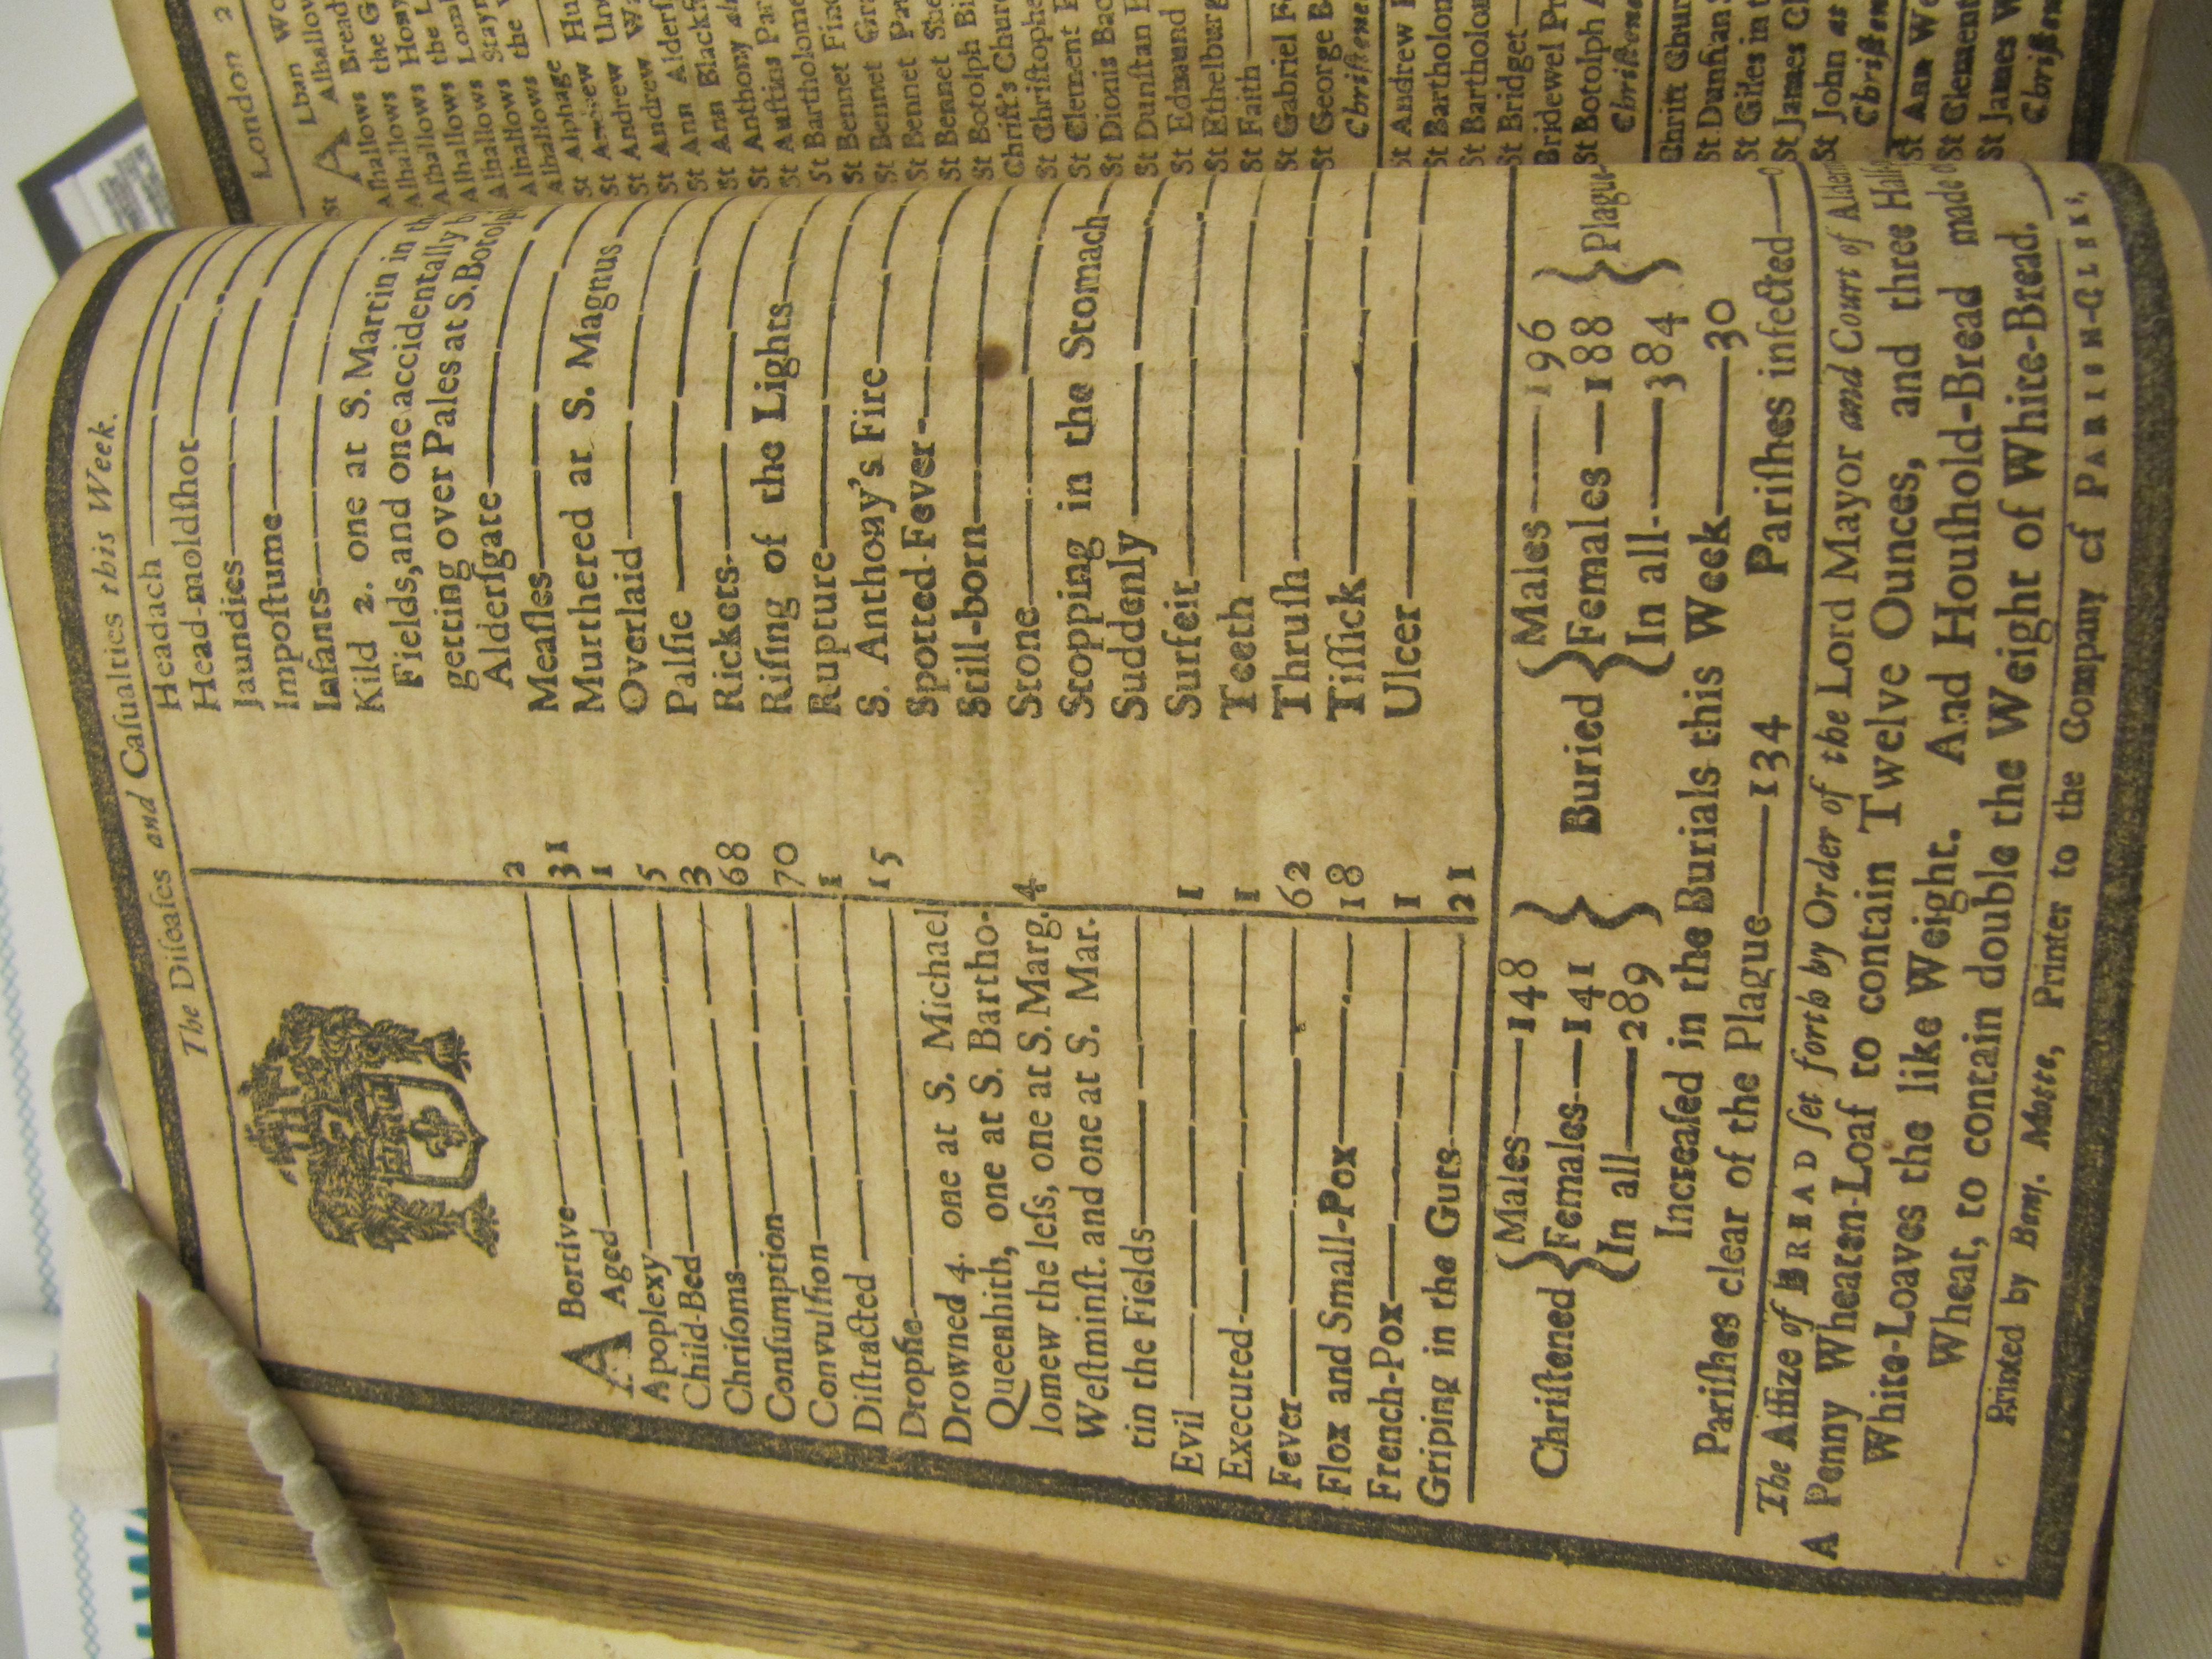 The Diſeaſes and Caſualties this Week.
A Bortive 2
Aged 31
Apoplexy 1
Child-Bed 5
Chriſoms 3
Conſumption 68
Convulſion 70
Diſtracted 1
Dropſie 15
Drowned 4. one at S. Michael
Queenhith, one at S. Bartho-
lomew the leſs, one at S. Marg. 4
Weſtminſt. and one at S. Mar.
tin the Fields
Evil 1
Executed 1
Fever 62
Flox and Small-Pox 18
French-Pox 1
Griping in the Guts 21
Headach
Head-moldſhot
Jaundies
Impoſtume
Infants
Kild 2. one at S. Martin in
Fields, and one accidentally
getting over Pales at S. Botolp
Alderſgate
Meaſles
Murthered at S. Magnus
Overlaid
Palſie
Rickets
Riſing of the Lights
Rupture
S. Anthony's Fire
Spotted-Fever
Still-born
Stone
Stopping in the Stomach
Suddenly
Surfeit
Teeth
Thruſh
Tiſſick
Ulcer
Chriſtened { Males 148 Females 141 In all 289 } Buried { Males 196 Females 188 In all 384 } Plagu
Increaſed in the Burials this Week 30
Pariſhes clear of the Plague 134 Pariſhes infected 0
The Aſſize of BREAD ſet forth by Order of the Lord Mayor and Court of Alder
A Penny Wheaten-Loaf to contain Twelve Ounces, and three Half
White-Loaves the like Weight. And Houſhold-Bread made
Wheat, to contain double the Weight of White-Bread.
Printed by Benj. Motte, Printer to the Company of PARISH-CLERKS,
London 2
St A Lban Wo
Alhallow
Alhallows Bread
Alhallows the G
Alhallows Hony
Alhallows the L
Alhallows Lomb
Alhallows Stayn
Alhallows the W
Alhallows
St Alphage
St Andrew Hu
St Andrew Un
St Andrew Wa
St Ann Alderſ
St Ann Blackf
St Anthony
St Auſtins Par
St Bartholome
St Bennet Finc
St Bennet Gra
St Bennet Pau
St Bennet She
St Botolph Bi
Chriſt's Chur
St Chriſtophe
St Clement E
St Dionis Bac
St Dunſtan E
St Edmund
St Ethelburg
St Faith
St Gabriel F
St George B
Chriſtene
St Andrew
St Bartholom
St Bartholo
St Bridget
Bridewel Pr
St Botolph A
Chriſtene
Chriſt Chur
St Dunſtan
St Giles in t
St James Cl
St John
Chriſten
St Ann We
St Clement
St James W
Chriſten